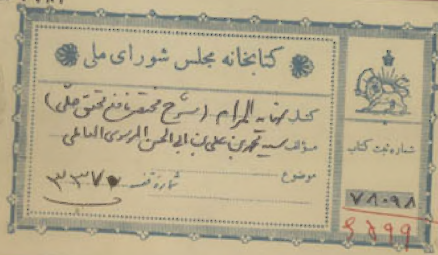 کتابخانه مجلس شورای ملی
کتاب نهایة المرام (شرح مختصر نافع محقق حلی)
مؤلف سید محمد بن علی بن ابی الحسن الموسوی العاملی
موضوع
شماره قفسه ۳۳۷۰
شماره ثبت کتاب
۷۸۰۹۸